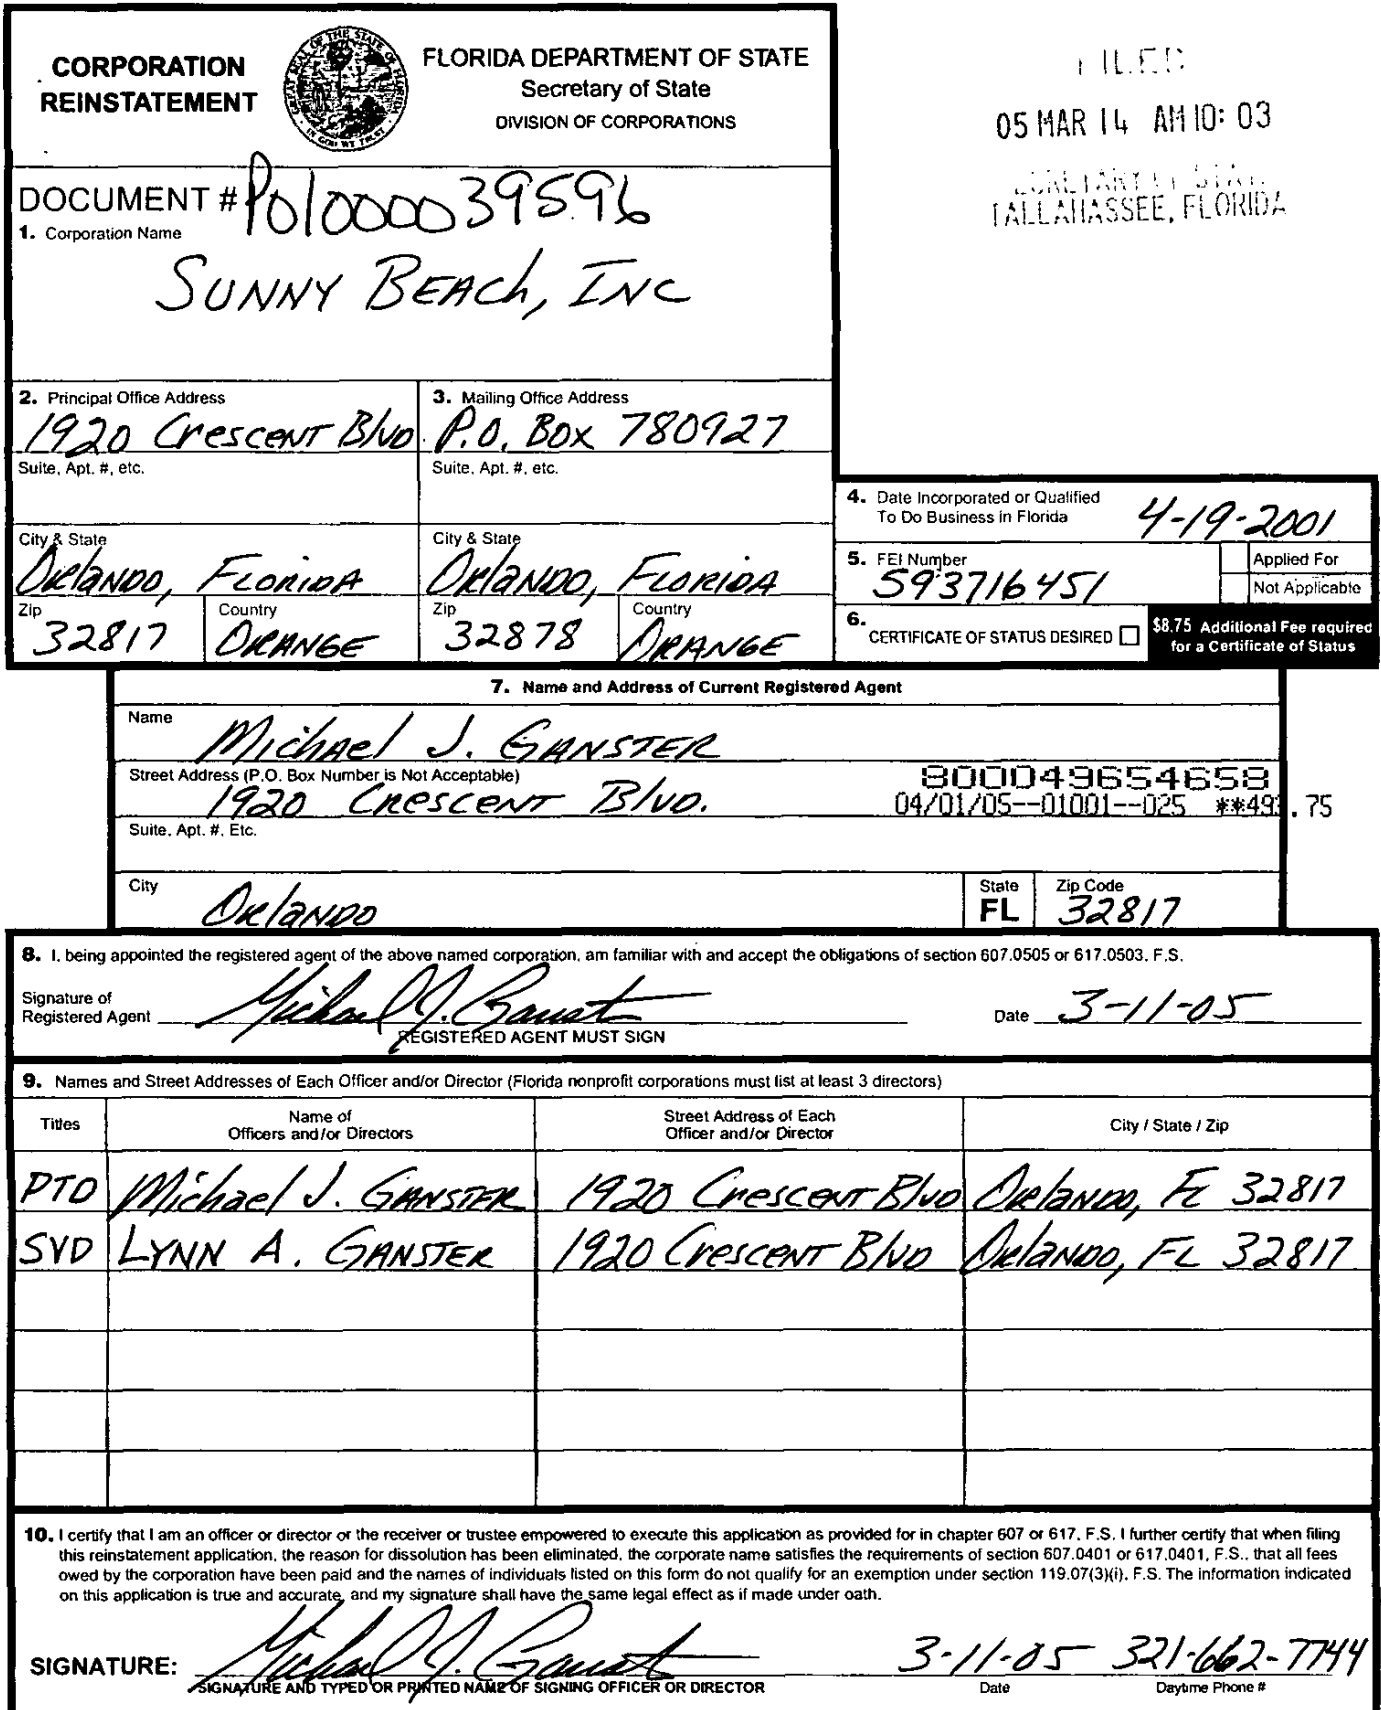 CORPORATION
REINSTATEMENT
GREAT SEAL OF THE STATE OF FLORIDA
IN GOD WE TRUST
FLORIDA DEPARTMENT OF STATE
Secretary of State
DIVISION OF CORPORATIONS
FILED
05 MAR 14 AM 10: 03
SECRETARY OF STATE
TALLAHASSEE, FLORIDA
DOCUMENT # P01000039596
1. Corporation Name
SUNNY BEACh, INC
2. Principal Office Address
1920 CresceNT Blvd.
3. Mailing Office Address
P.O. Box 780927
Suite, Apt. #, etc.
Suite, Apt. #, etc.
City & State
Orlando, Florida
City & State
Orlando, Florida
Zip
32817
Country
ORANGE
Zip
32878
Country
ORANGE
4. Date Incorporated or Qualified
To Do Business in Florida
4-19-2001
5. FEI Number
593716451
Applied For
Not Applicable
6.
CERTIFICATE OF STATUS DESIRED
$8.75 Additional Fee required
for a Certificate of Status
7. Name and Address of Current Registered Agent
Name
Michael J. GANSTER
Street Address (P.O. Box Number is Not Acceptable)
1920 Crescent Blvd.
800049654658
04/01/05--01001--025 **493.75
Suite, Apt. #, Etc.
City
Orlando
State
FL
Zip Code
32817
8. I, being appointed the registered agent of the above named corporation, am familiar with and accept the obligations of section 607.0505 or 617.0503, F.S.
Signature of
Registered Agent
Michael J. Ganster
Date 3-11-05
REGISTERED AGENT MUST SIGN
9. Names and Street Addresses of Each Officer and/or Director (Florida nonprofit corporations must list at least 3 directors)
Titles
Name of
Officers and/or Directors
Street Address of Each
Officer and/or Director
City / State / Zip
PTD Michael J. GANSTER 1920 Crescent Blvd Orlando, FL 32817
SVD LYNN A. GANSTER 1920 Crescent Blvd Orlando, FL 32817
10. I certify that I am an officer or director or the receiver or trustee empowered to execute this application as provided for in chapter 607 or 617, F.S. I further certify that when filing
this reinstatement application, the reason for dissolution has been eliminated, the corporate name satisfies the requirements of section 607.0401 or 617.0401, F.S., that all fees
owed by the corporation have been paid and the names of individuals listed on this form do not qualify for an exemption under section 119.07(3)(i), F.S. The information indicated
on this application is true and accurate, and my signature shall have the same legal effect as if made under oath.
SIGNATURE: Michael J. Ganster 3-11-05 321-662-7744
SIGNATURE AND TYPED OR PRINTED NAME OF SIGNING OFFICER OR DIRECTOR
Date
Daytime Phone #